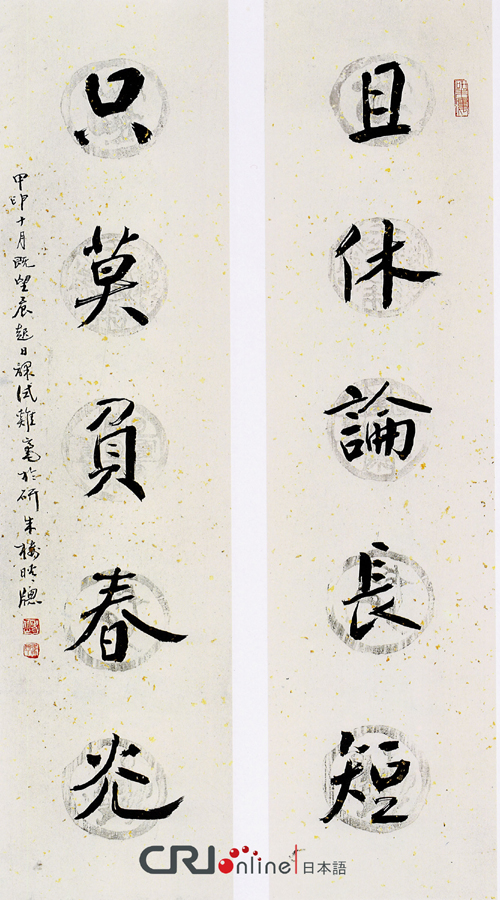 且休論長短
只莫負春光
甲申十月既望晨起日課試雞毫於研朱樓
CRIonline 日本語